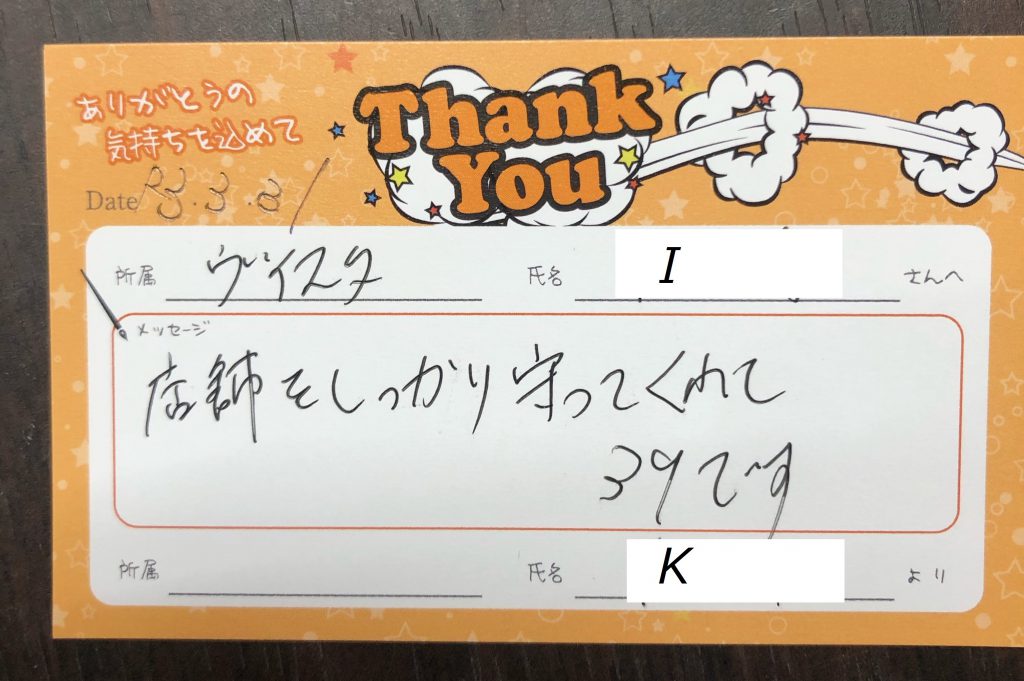 ありがとうの
気持ちを込めて
Thank
You
Date R3.3.31
所属 ヴィスタ 氏名 I さんへ
メッセージ
店舗をしっかり守ってくれて
39です
所属 氏名 K より